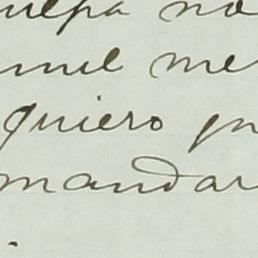 culpa no
mil me
quiero
mandar